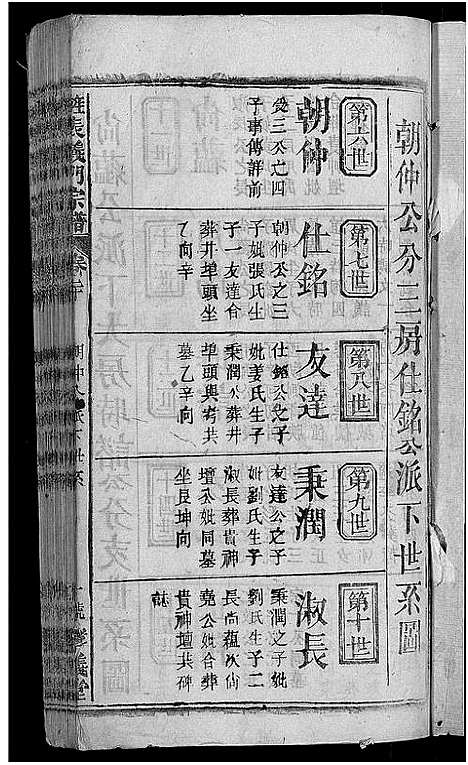 朝仲公分三房仕銘公派下世系圖
第六世
朝仲
三公之四
子事傳詳前
第七世
仕銘
朝仲公之三
子妣張氏生
子一友達合
葬井埠頭坐
乙向辛
第八世
友達
仕銘公之子
妣姜氏生子
秉潤公葬井
埠頭與考共
墓乙辛向
第九世
秉潤
友達公之子
妣劉氏生子
淑長葬貴神
壇公妣同墓
坐艮坤向
第十世
淑長
秉潤之子妣
劉氏生子二
長尚蘊次尚
堯公妣合葬
貴神壇共碑
誌
張義門宗譜